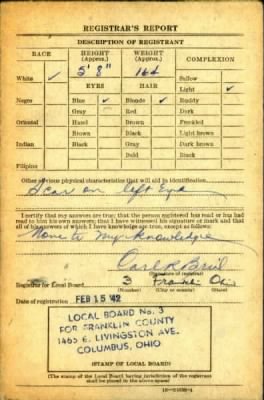 REGISTRAR'S REPORT
DESCRIPTION OF REGISTRANT
RACE HEIGHT (Approx.) WEIGHT (Approx.) COMPLEXION
White ✓ 5' 8" 164 Sallow
EYES HAIR Light ✓
Negro Blue ✓ Blonde ✓ Ruddy
Gray Red Dark
Oriental Hazel Brown Freckled
Brown Black Light brown
Indian Black Gray Dark brown
Bald Black
Filipino
Other obvious physical characteristics that will aid in identification
Scar on left Eye
I certify that my answers are true; that the person registered has read or has had
read to him his own answers; that I have witnessed his signature or mark and that
all of his answers of which I have knowledge are true, except as follows:
None to my knowledge
Carl R
(Signature of registrar)
Registrar for Local Board 3 Franklin Ohio
(Number) (City or county) (State)
Date of registration FEB 15 '42
LOCAL BOARD No. 3
FOR FRANKLIN COUNTY
1465 E. LIVINGSTON AVE.
COLUMBUS, OHIO
(STAMP OF LOCAL BOARD)
(The stamp of the Local Board having jurisdiction of the registrant
shall be placed in the above space)